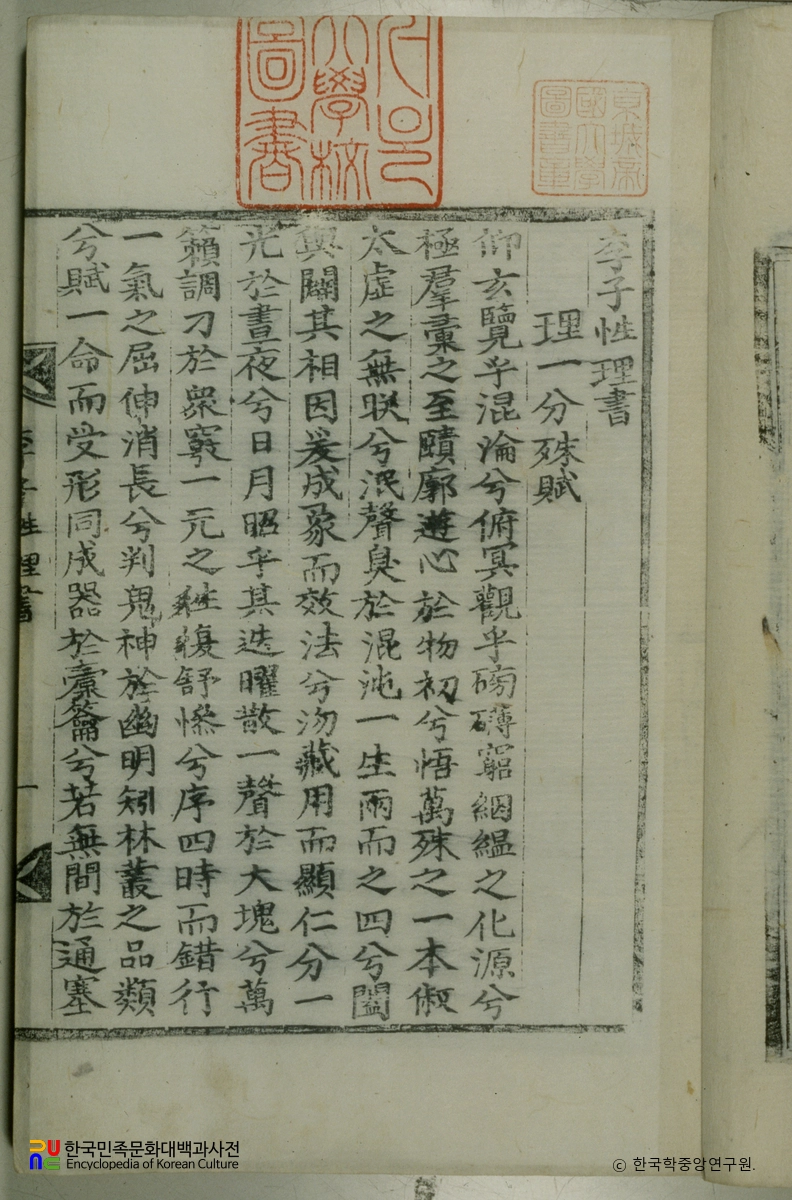 서울
大學校
圖書
京城帝
國大學
圖書章
李子性理書
理一分殊賦
仰玄覽乎混淪兮俯冥觀乎磅礴窮絪縕之化源兮
極羣彙之至賾廓遊心於物初兮悟萬殊之一本俶
太虛之無眹兮泯聲臭於混沌一生兩而之四兮闔
與闢其相因爰成象而效法兮沕藏用而顯仁分一
光於晝夜兮日月昭乎其迭曜散一聲於大塊兮萬
籟調刁於衆竅一元之往復舒慘兮序四時而錯行
一氣之屈伸消長兮判鬼神於幽明矧林叢之品類
兮賦一命而受形同成器於橐籥兮若無間於通塞
李子性理書 一
한국민족문화대백과사전
Encyclopedia of Korean Culture
ⓒ 한국학중앙연구원.